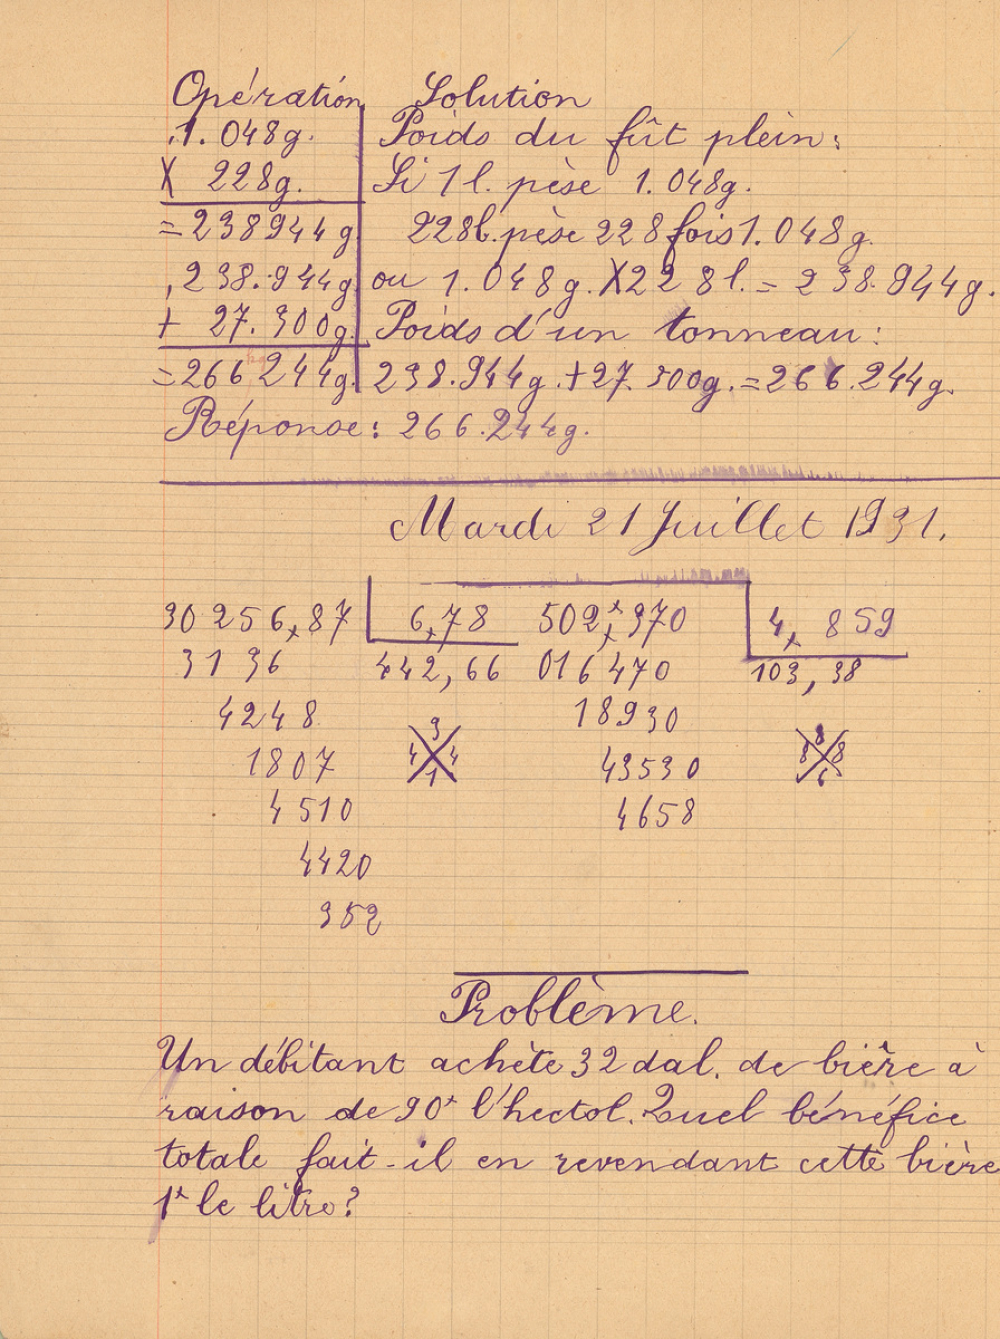 Opération Solution
1.048g. Poids du fût plein:
X 228g. Si 1 l. pèse 1.048g.
=238944g 228l. pèse 228 fois 1.048g.
238.944g ou 1.048g. X 228l. = 238.944g.
+ 27.300g. Poids d'un tonneau:
=266244g. 238.944g. + 27.300g. = 266.244g.
Réponse: 266.244g.
Mardi 21 Juillet 1931.
30256,87 6,78 502,370 4,859
3136 442,66 016470 103,38
4248 18930
1807 3 4 4 1 43530 8 8 8 6
4510 4658
4420
352
Problème.
Un débitant achète 32 dal. de bière à
raison de 90f l'hectol. Quel bénéfice
totale fait-il en revendant cette bière
1f le litre?